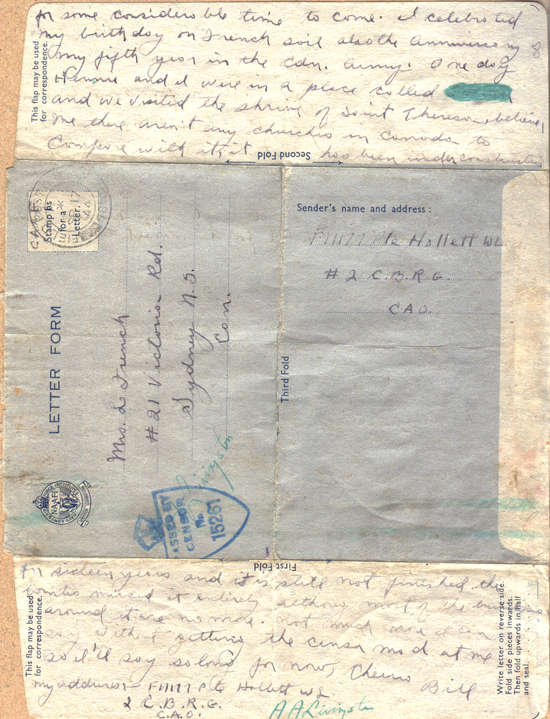 for some considerable time to come. I celebrated
my birthday on French soil also the anniversary of
my fifth year in the Cdn. Army. One day
and I were in a place called
and we visited the shrine of Saint Theresa, believe
me there aren't any churches in Canada to
compare with it, it has been under construction
This flap may be used
for correspondence.
Second Fold
Stamp as
for a
Letter.
LETTER FORM
NAAFI
Mrs. L. French
#21 Victoria Rd.
Sydney N.S.
Can.
PASSED BY
CENSOR
No.
15251
Livingston
Sender's name and address :
F11177 Pte Hollett WL
#2 C.B.R.G.
C.A.O.
Third Fold
First Fold
for sixteen years and it is still not finished. the
bombs missed it entirely although most of the
around it are no more. Not much more I can
say without getting the censor mad at me
so I'll say so long for now, Cheerio
Bill
my address - F11177 Pte Hollett WL
2 C.B.R.G.
C.A.O.
A A Livingston
This flap may be used
for correspondence.
Write letter on reverse side.
Fold side pieces inwards.
Then fold upwards in half
and seal.